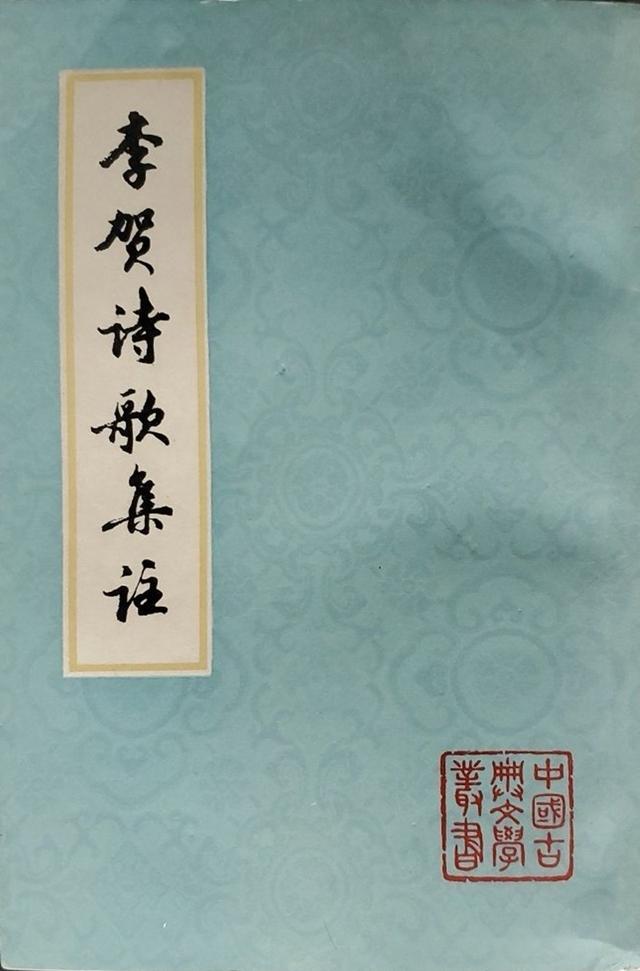 李贺诗歌集註
中國古
典文學
叢書